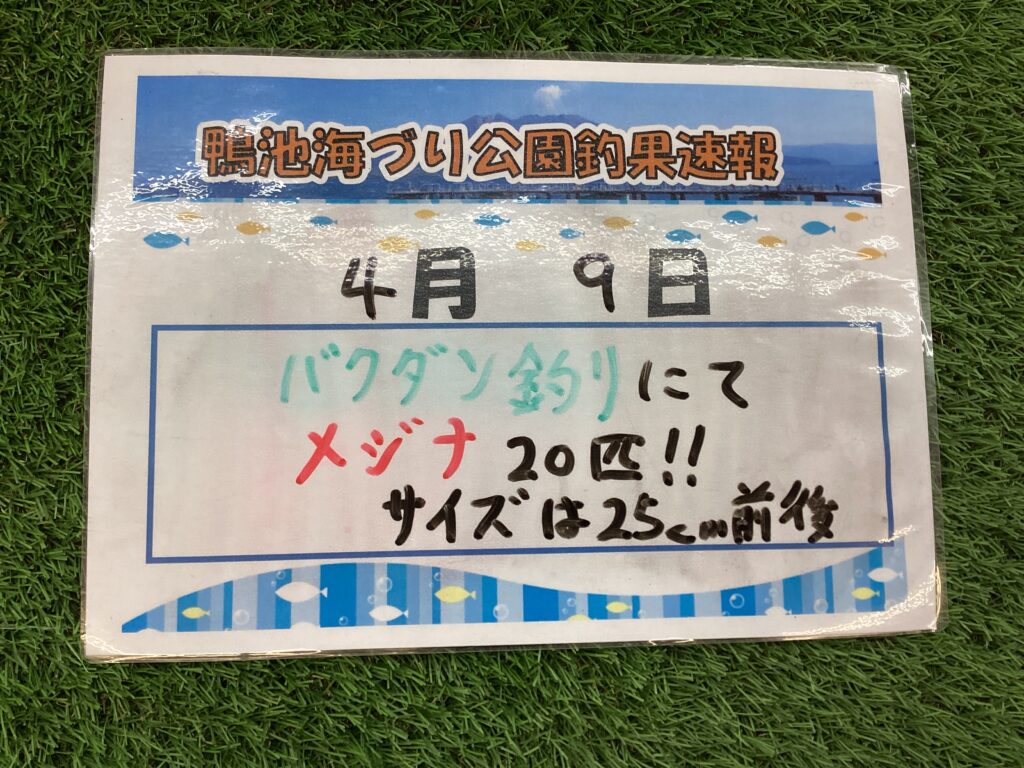 鴨池海づり公園釣果速報
4月 9日
バクダン釣りにて
メジナ 20匹!!
サイズは25cm前後